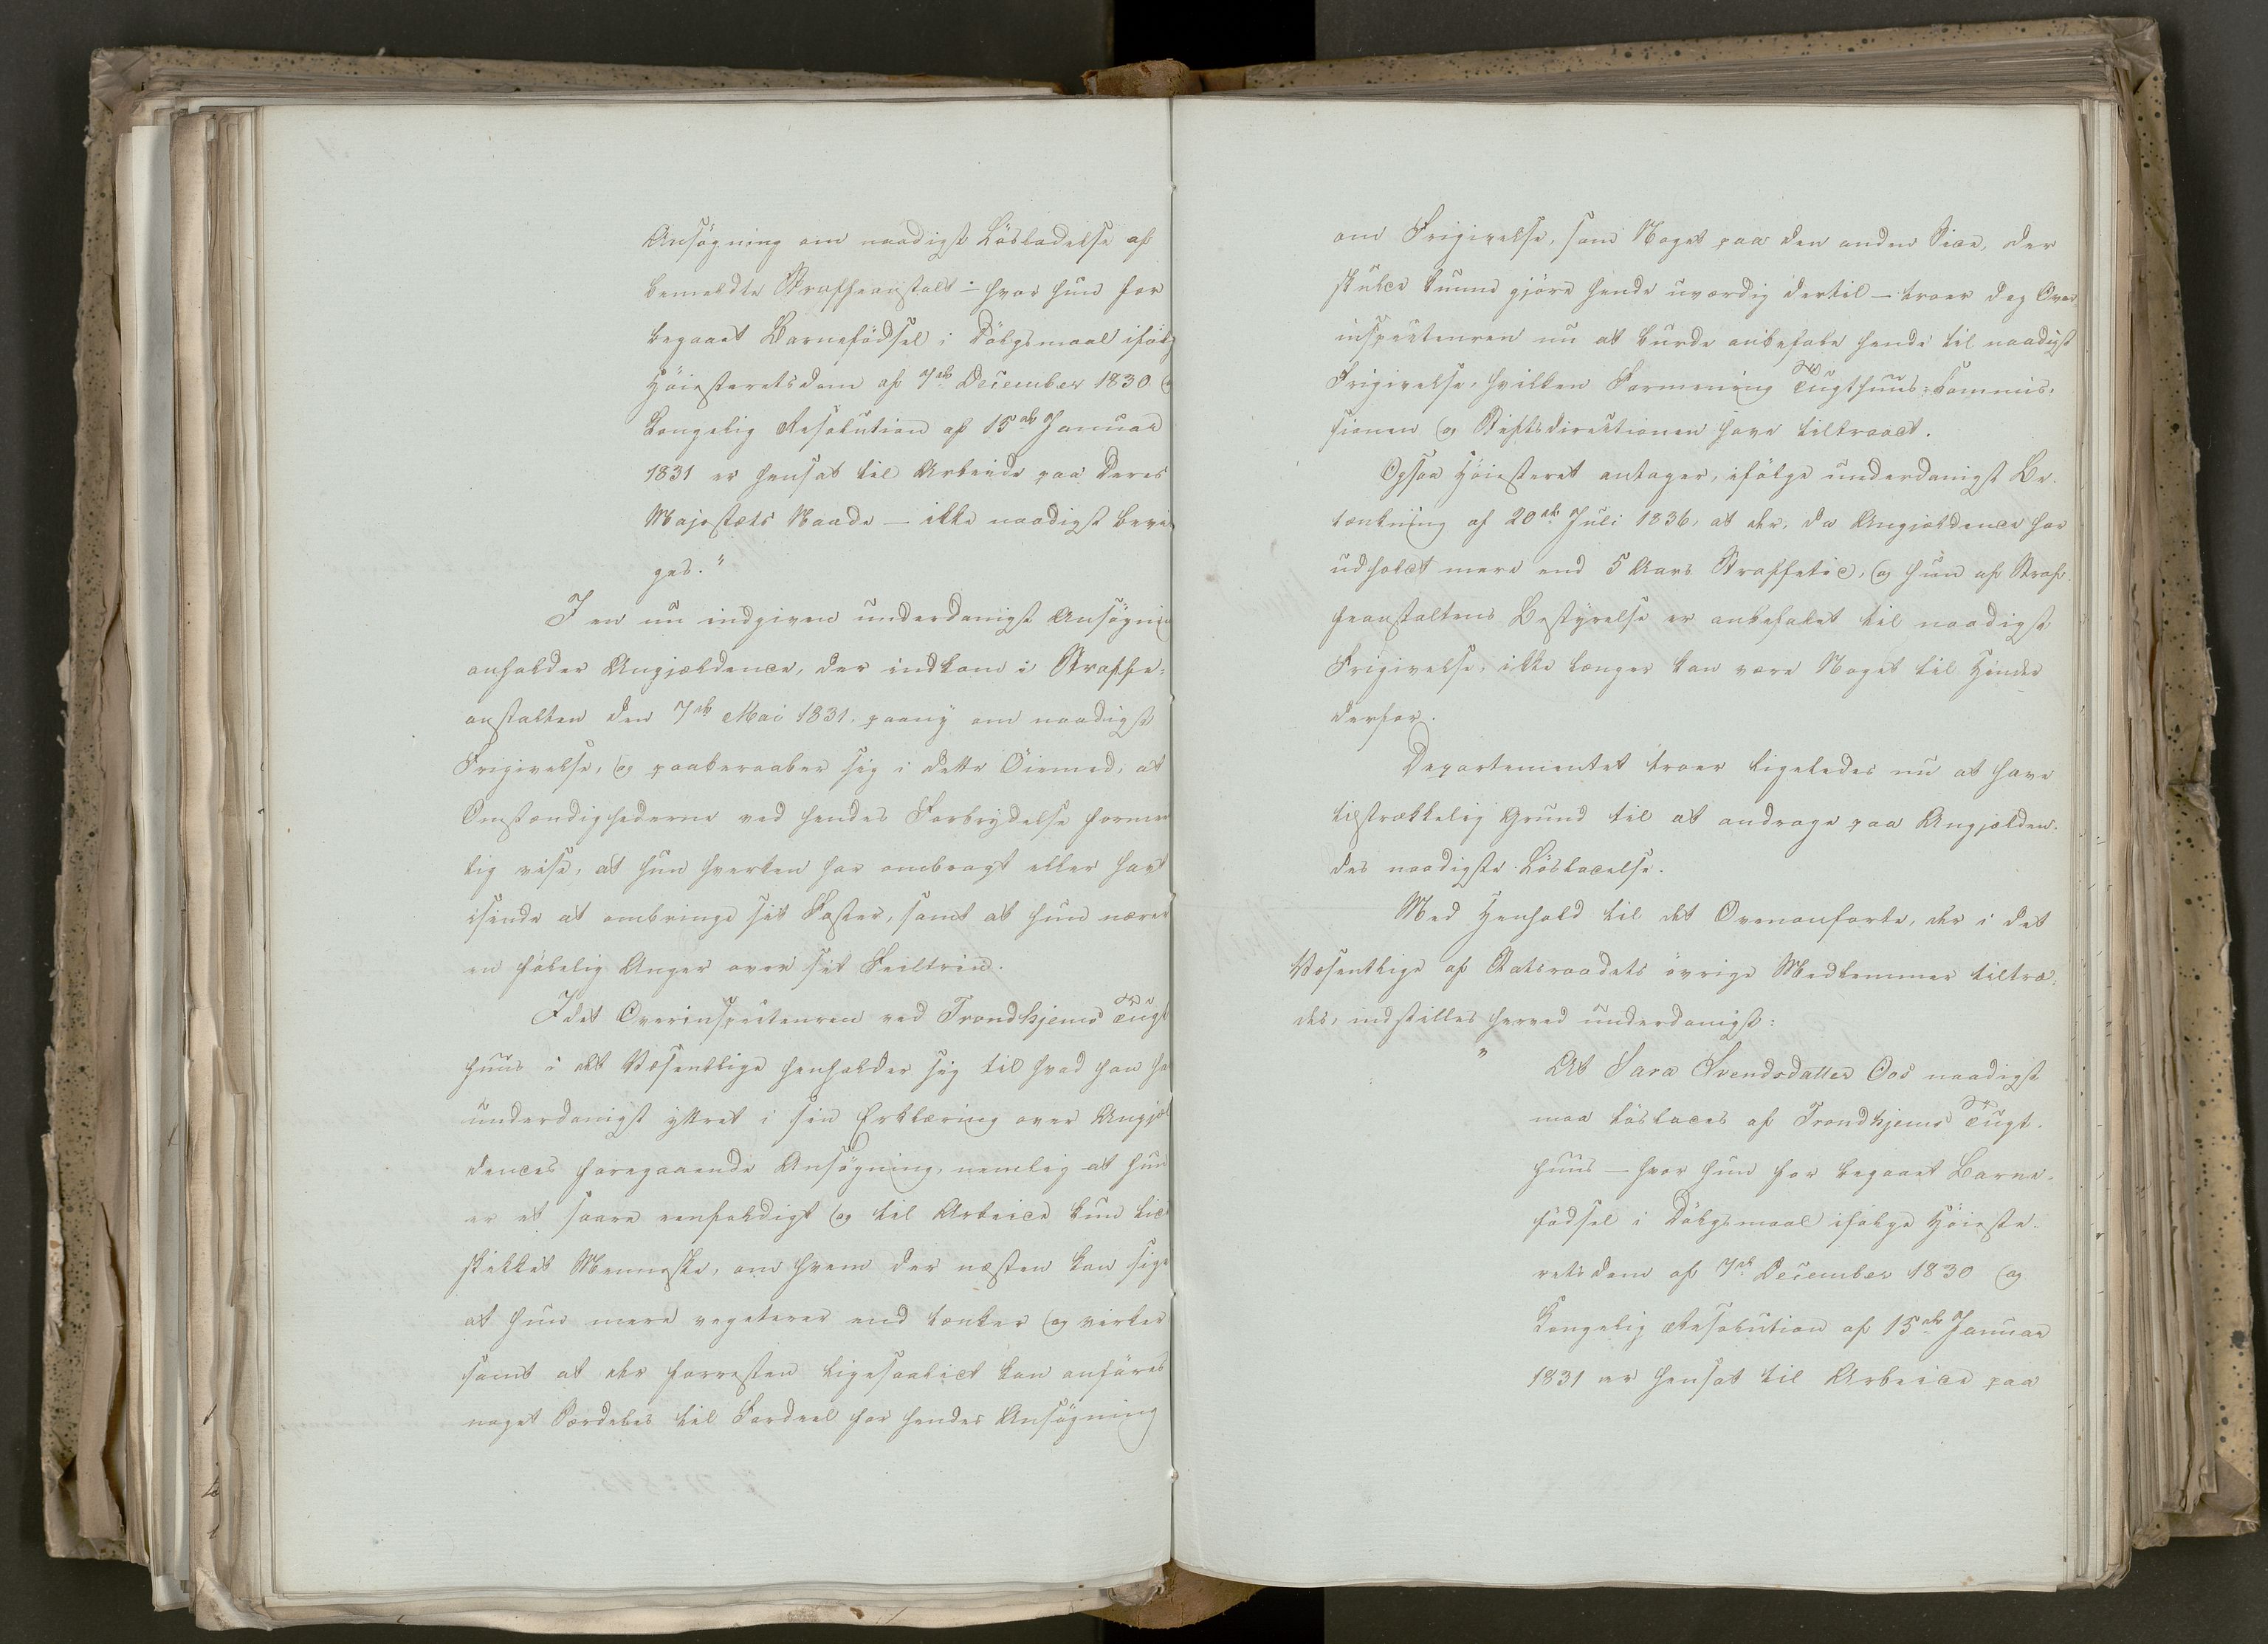 Ansøgning om naadigst Løsladelse af
bemeldte Straffeanstalt — hvor hun for
begaaet Barnefødsel i Dølgsmaal ifølg
Høiesteretsdom af 7de December 1830 o
Kongelig Resolution af 15de Januar
1831 er hensat til Arbeide paa Deres
Majestæts Naade — ikke naadigst bevil
ges."
I en nu indgiven underdanigst Ansøgnin
anholder Angjældende, der indkom i Straffe-
anstalten den 7de Mai 1831, paany om naadigst
Frigivelse, og paaberaaber sig i dette Øiemed, at
Omstændighederne ved hendes Forbrydelse formee
lig vise, at hun hverken har ombragt eller havt
isinde at ombringe sit Foster, samt at hun nærer
en følelig Anger over sit Feiltrin.
Idet Overinspecteuren ved Trondhjems Tugt
huus i det Væsentlige henholder sig til hvad han ha
underdanigst yttret i sin Erklæring over Angjæl
dendes foregaaende Ansøgning, nemlig at hun
er et saare eenfoldigt og til Arbeide kun lid
skikket Menneske, om hvem der næsten kan sige
at hun mere vegeterer end tænker og virker
samt at der forresten ligesaalidt kan anføres
noget Særdeles til Fordeel for hendes Ansøgning
om Frigivelse, som Noget paa den anden Side, der
skulde kunne gjøre hende uværdig dertil — troer dog Over
inspecteuren nu at burde anbefale hende til naadigst
Frigivelse, hvilken Formening Tugthuus-Commis-
sionen og Stiftsdirectionen have tiltraadt.
Ogsaa Høiesteret antager, ifølge underdanigst Be-
tænkning af 20de Juli 1836, at der, da Angjældende har
udholdt mere end 5 Aars Straffetid, og hun af Straf-
feanstaltens Bestyrelse er anbefalet til naadigst
Frigivelse, ikke længer kan være Noget til Hinder
derfor.
Departementet troer ligeledes nu at have
tilstrækkelig Grund til at andrage paa Angjælden-
des naadigste Løsladelse.
Med Henhold til det Ovenanførte, der i det
Væsentlige af Statsraadets øvrige Medlemmer tiltræ-
des, indstilles herved underdanigst:
" At Sara Svendsdatter Oos naadigst
maa løslades af Trondhjems Tugt-
huus — hvor hun for begaaet Barne-
fødsel i Dølgsmaal ifølge Høieste-
retsdom af 7de December 1830 og
Kongelig Resolution af 15de Januar
1831 er hensat til Arbeide paa